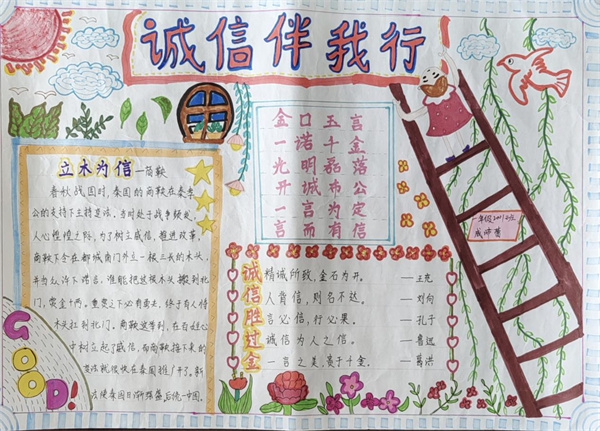 诚信伴我行
金口玉言
一诺千金
光明磊落
开诚布公
一言为定
言而有信
立木为信—商鞅
春秋战国时，秦国的商鞅在秦孝
公的支持下主持变法，当时处于战争频处，
人心惶惶之际，为了树立威信，推进改革，
商鞅下令在都城南门外立一根三丈的木头，
并当众许下诺言，谁能把这根木头搬到北
门，赏金十两，重赏之下必有勇夫，终于有人将
木头扛到北门。商鞅这举动，在百姓心
中树立起了威信，而商鞅接下来的
变法就很快在秦国推广开了。新
法使秦国日渐强盛，后统一中国。
GOOD!
诚信胜过金
精诚所致，金石为开。——王充
人背信，则名不达。——刘向
言必信，行必果。——孔子
诚信为人之信。——鲁迅
一言之美，贵于千金。——葛洪
一年级